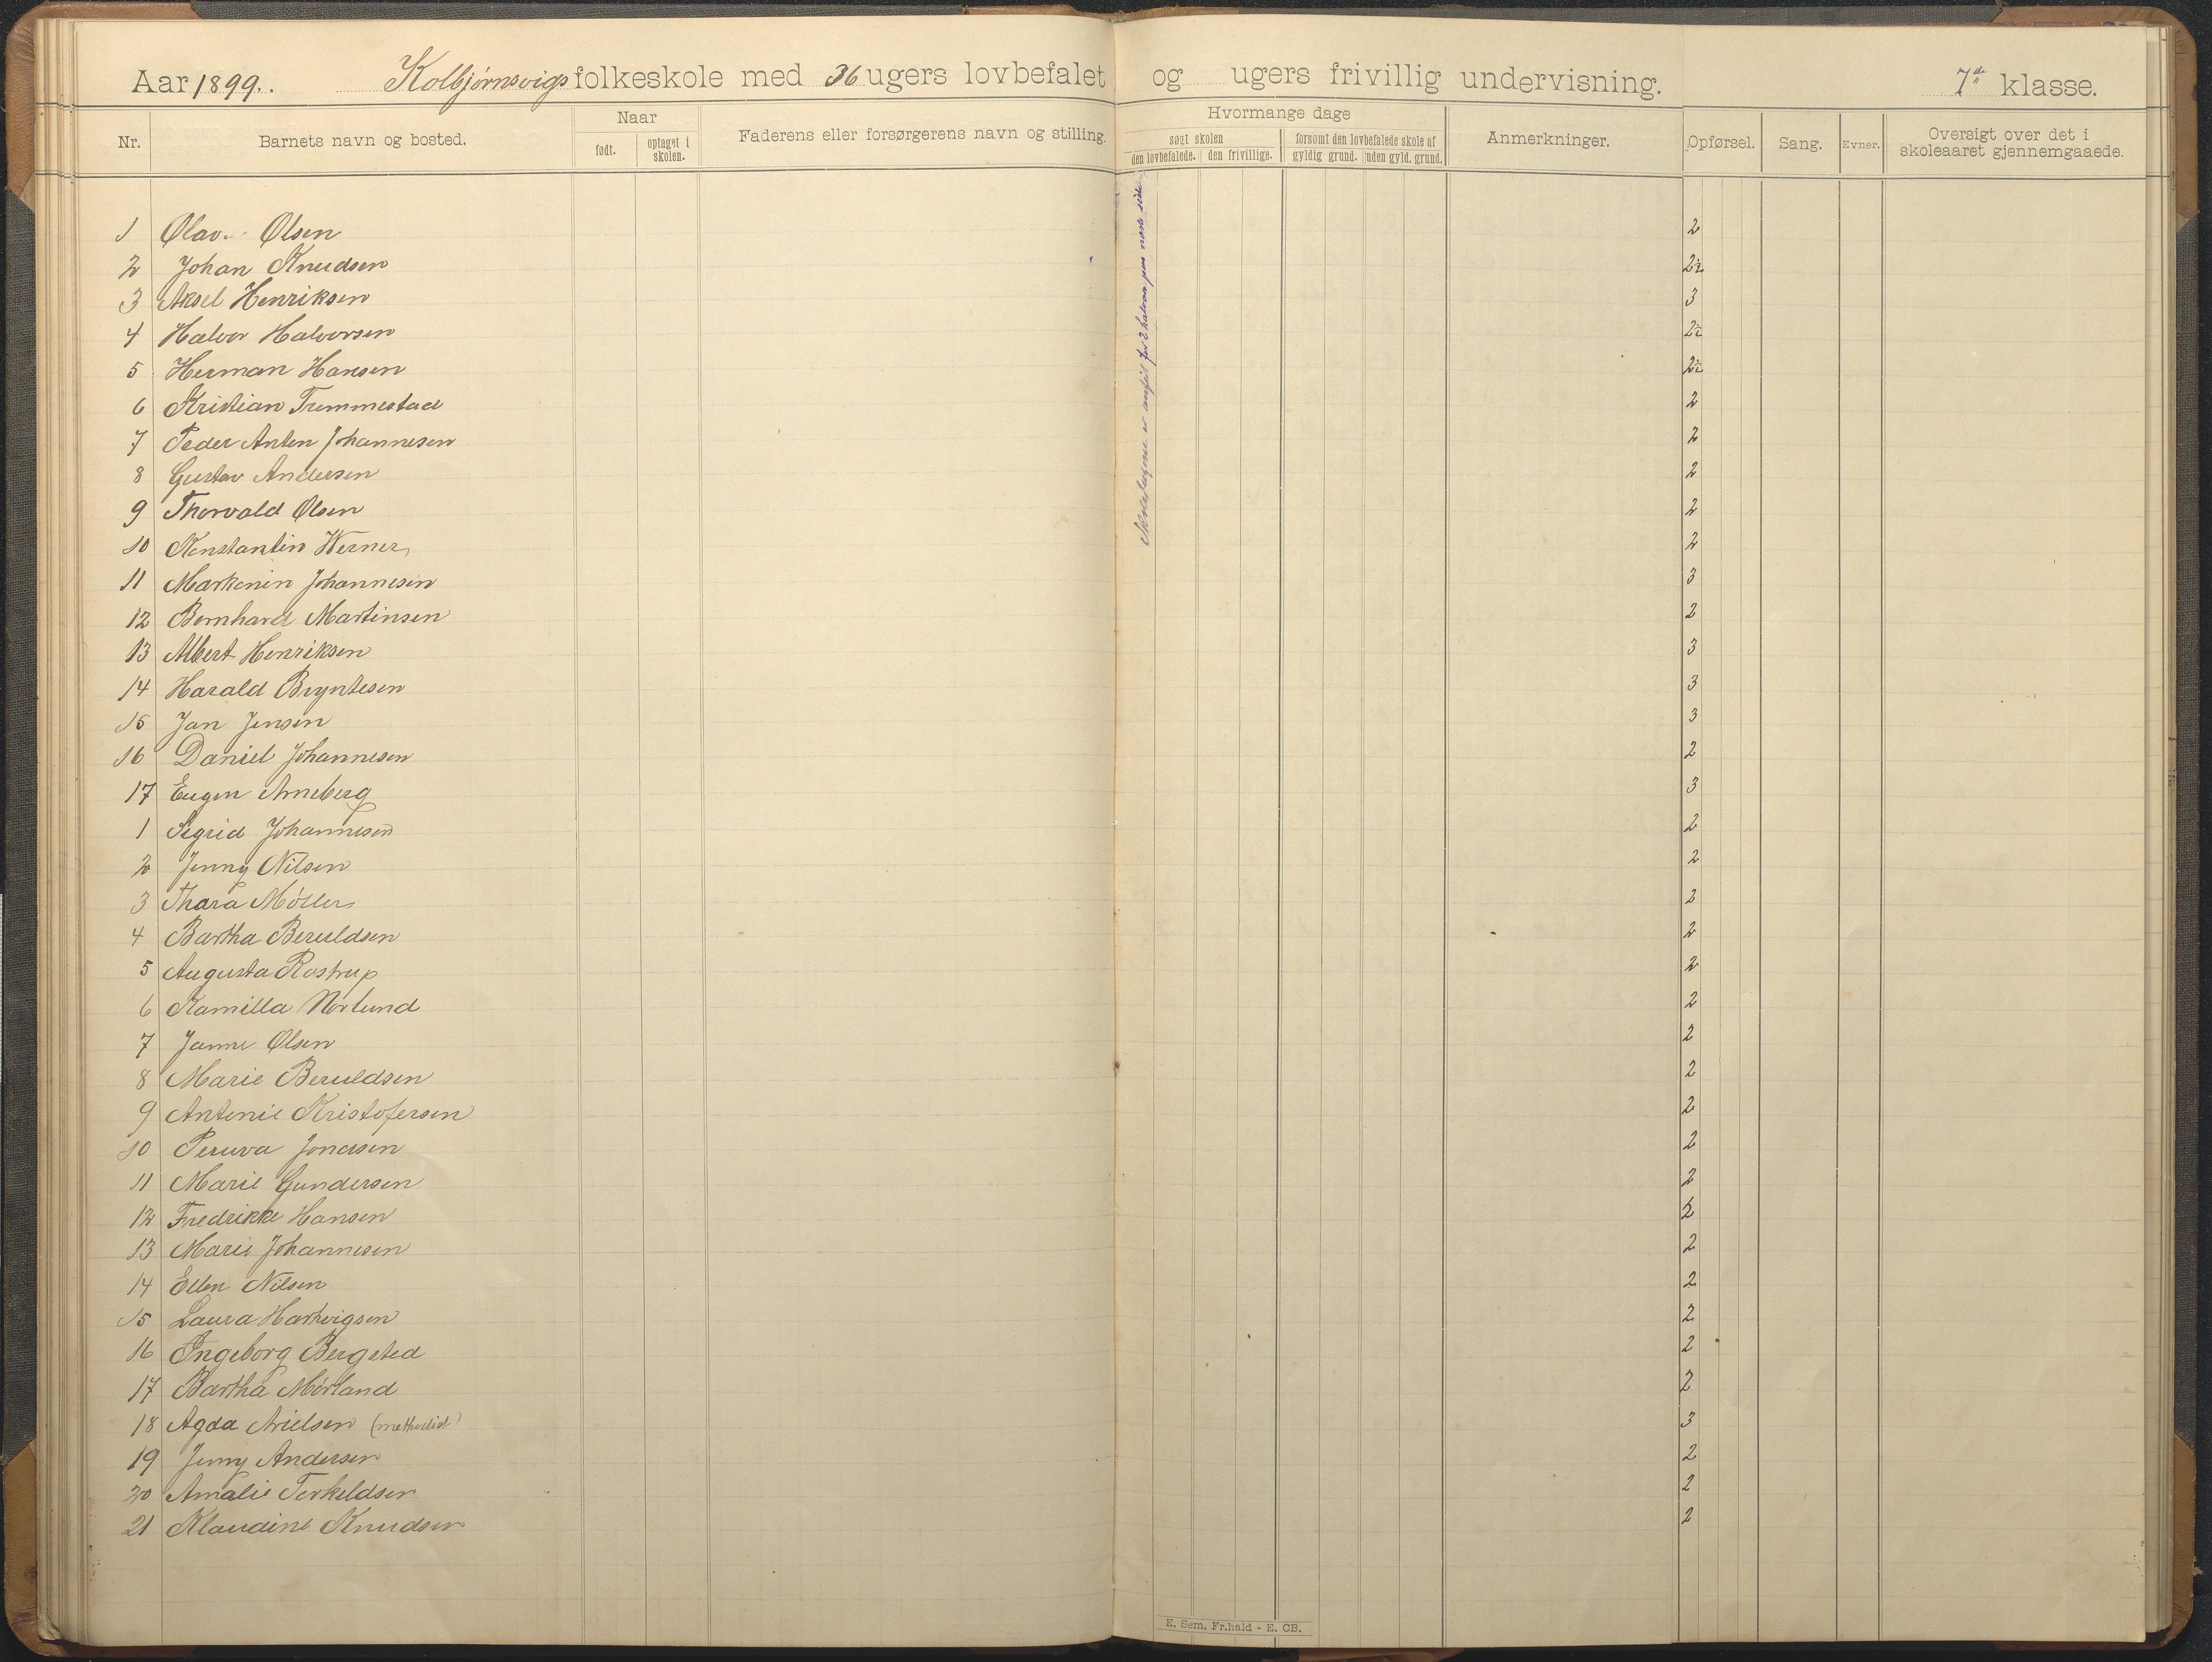 Aar 1899. Kolbjørnsvigs folkeskole med 36 ugers lovbefalet og ugers frivillig undervisning. 7de klasse.
Nr. Barnets navn og bosted. Naar født. optaget i skolen. Faderens eller forsørgerens navn og stilling. Hvormange dage søgt skolen den lovbefalede. den frivillige. forsømt den lovbefalede skole af gyldig grund. uden gyld. grund. Anmerkninger. Opførsel. Sang. Evner. Oversigt over det i skoleaaret gjennemgaaede.
Skoledagene er anført for 2 halvaar paa næste side
1 Olav Olsen 2
2 Johan Knudsen 2½
3 Aksel Henriksen 3
4 Halvor Halvorsen 2½
5 Herman Hansen 2½
6 Kristian Trommestad 2
7 Peder Anton Johannesen 2
8 Gustav Andersen 2
9 Thorvald Olsen 2
10 Konstantin Werner 2
11 Markenin Johannesen 3
12 Bernhard Martinsen 2
13 Albert Henriksen 3
14 Harald Bryntesen 3
15 Jan Jensen 3
16 Daniel Johannesen 2
17 Eugen Arneberg 3
1 Sigrid Johannesen 2
2 Jenny Nilsen 2
3 Thora Møller 2
4 Bartha Beruldsen 2
5 Augusta Rostrup 2
6 Kamilla Norlund 2
7 Janne Olsen 2
8 Marie Beruldsen 2
9 Antonie Kristofersen 2
10 Peruva Jonassen 2
11 Marie Gundersen 2
12 Fredrikke Hansen 2
13 Marie Johannesen 2
14 Ellen Nilsen 2
15 Laura Hartvigsen 2
16 Ingeborg Bergsted 2
17 Bartha Mørland 2
18 Agda Nielsen (methodist) 3
19 Jenny Andersen 2
20 Amalie Terkeldsen 2
21 Klaudine Knudsen 2
E. Sem, Fr.hald - E. CB.